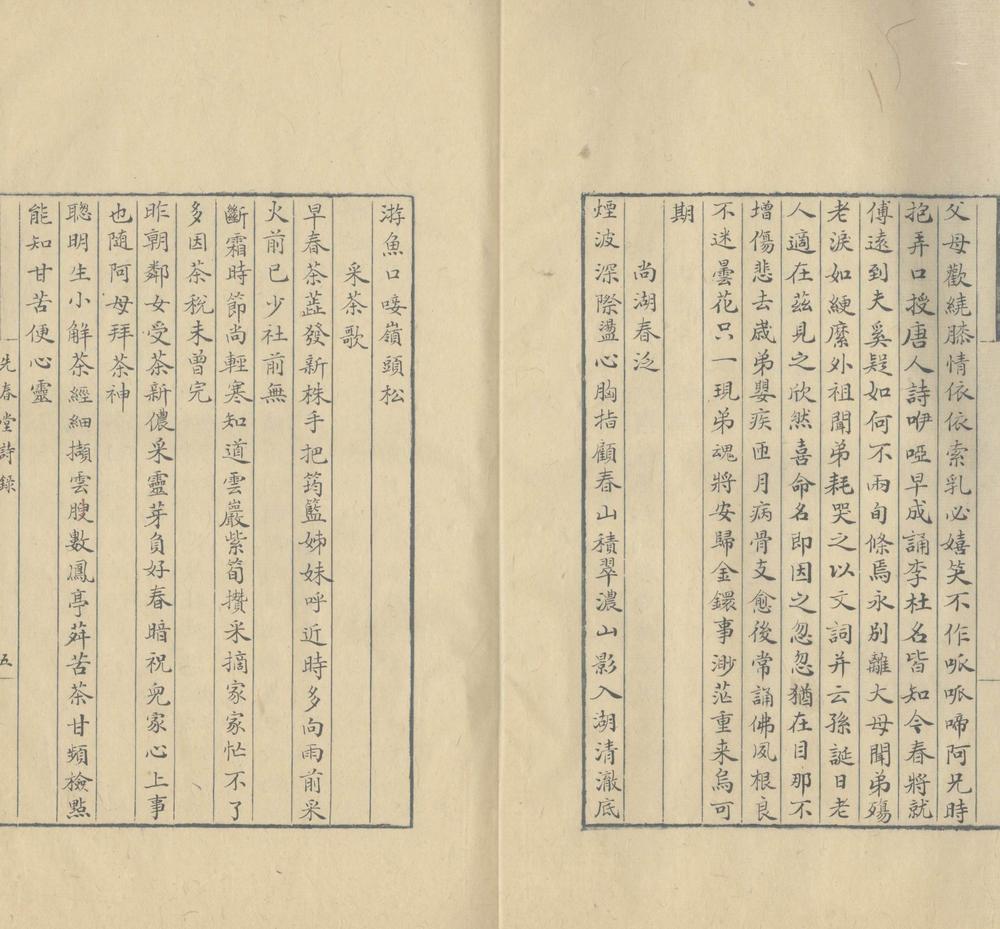 父母歡繞膝情依依索乳必嬉笑不作呱呱啼阿兄時
抱弄口授唐人詩咿啞早成誦李杜名皆知今春將就
傅遠到夫奚疑如何不兩旬倏焉永別離大母聞弟殤
老淚如綆縻外祖聞弟耗哭之以文詞并云孫誕日老
人適在茲見之欣然喜命名即因之忽忽猶在目那不
增傷悲去歲弟嬰疾匝月病骨支愈後常誦佛夙根良
不迷曇花只一現弟魂將安歸金鐶事渺茫重来烏可
期
尚湖春泛
煙波深際盪心胸指顧春山積翠濃山影入湖清澈底
游魚口唼嶺頭松
采茶歌
早春茶蕋發新株手把筠籃姊妹呼近時多向雨前采
火前已少社前無
斷霜時節尚輕寒知道雲巖紫筍攢采摘家家忙不了
多因茶稅未曾完
昨朝鄰女受茶新儂采靈芽負好春暗祝兒家心上事
也隨阿母拜茶神
聰明生小解茶經細擷雲腴數鳳亭荈苦茶甘頻檢點
能知甘苦便心靈
先春堂詩録
五